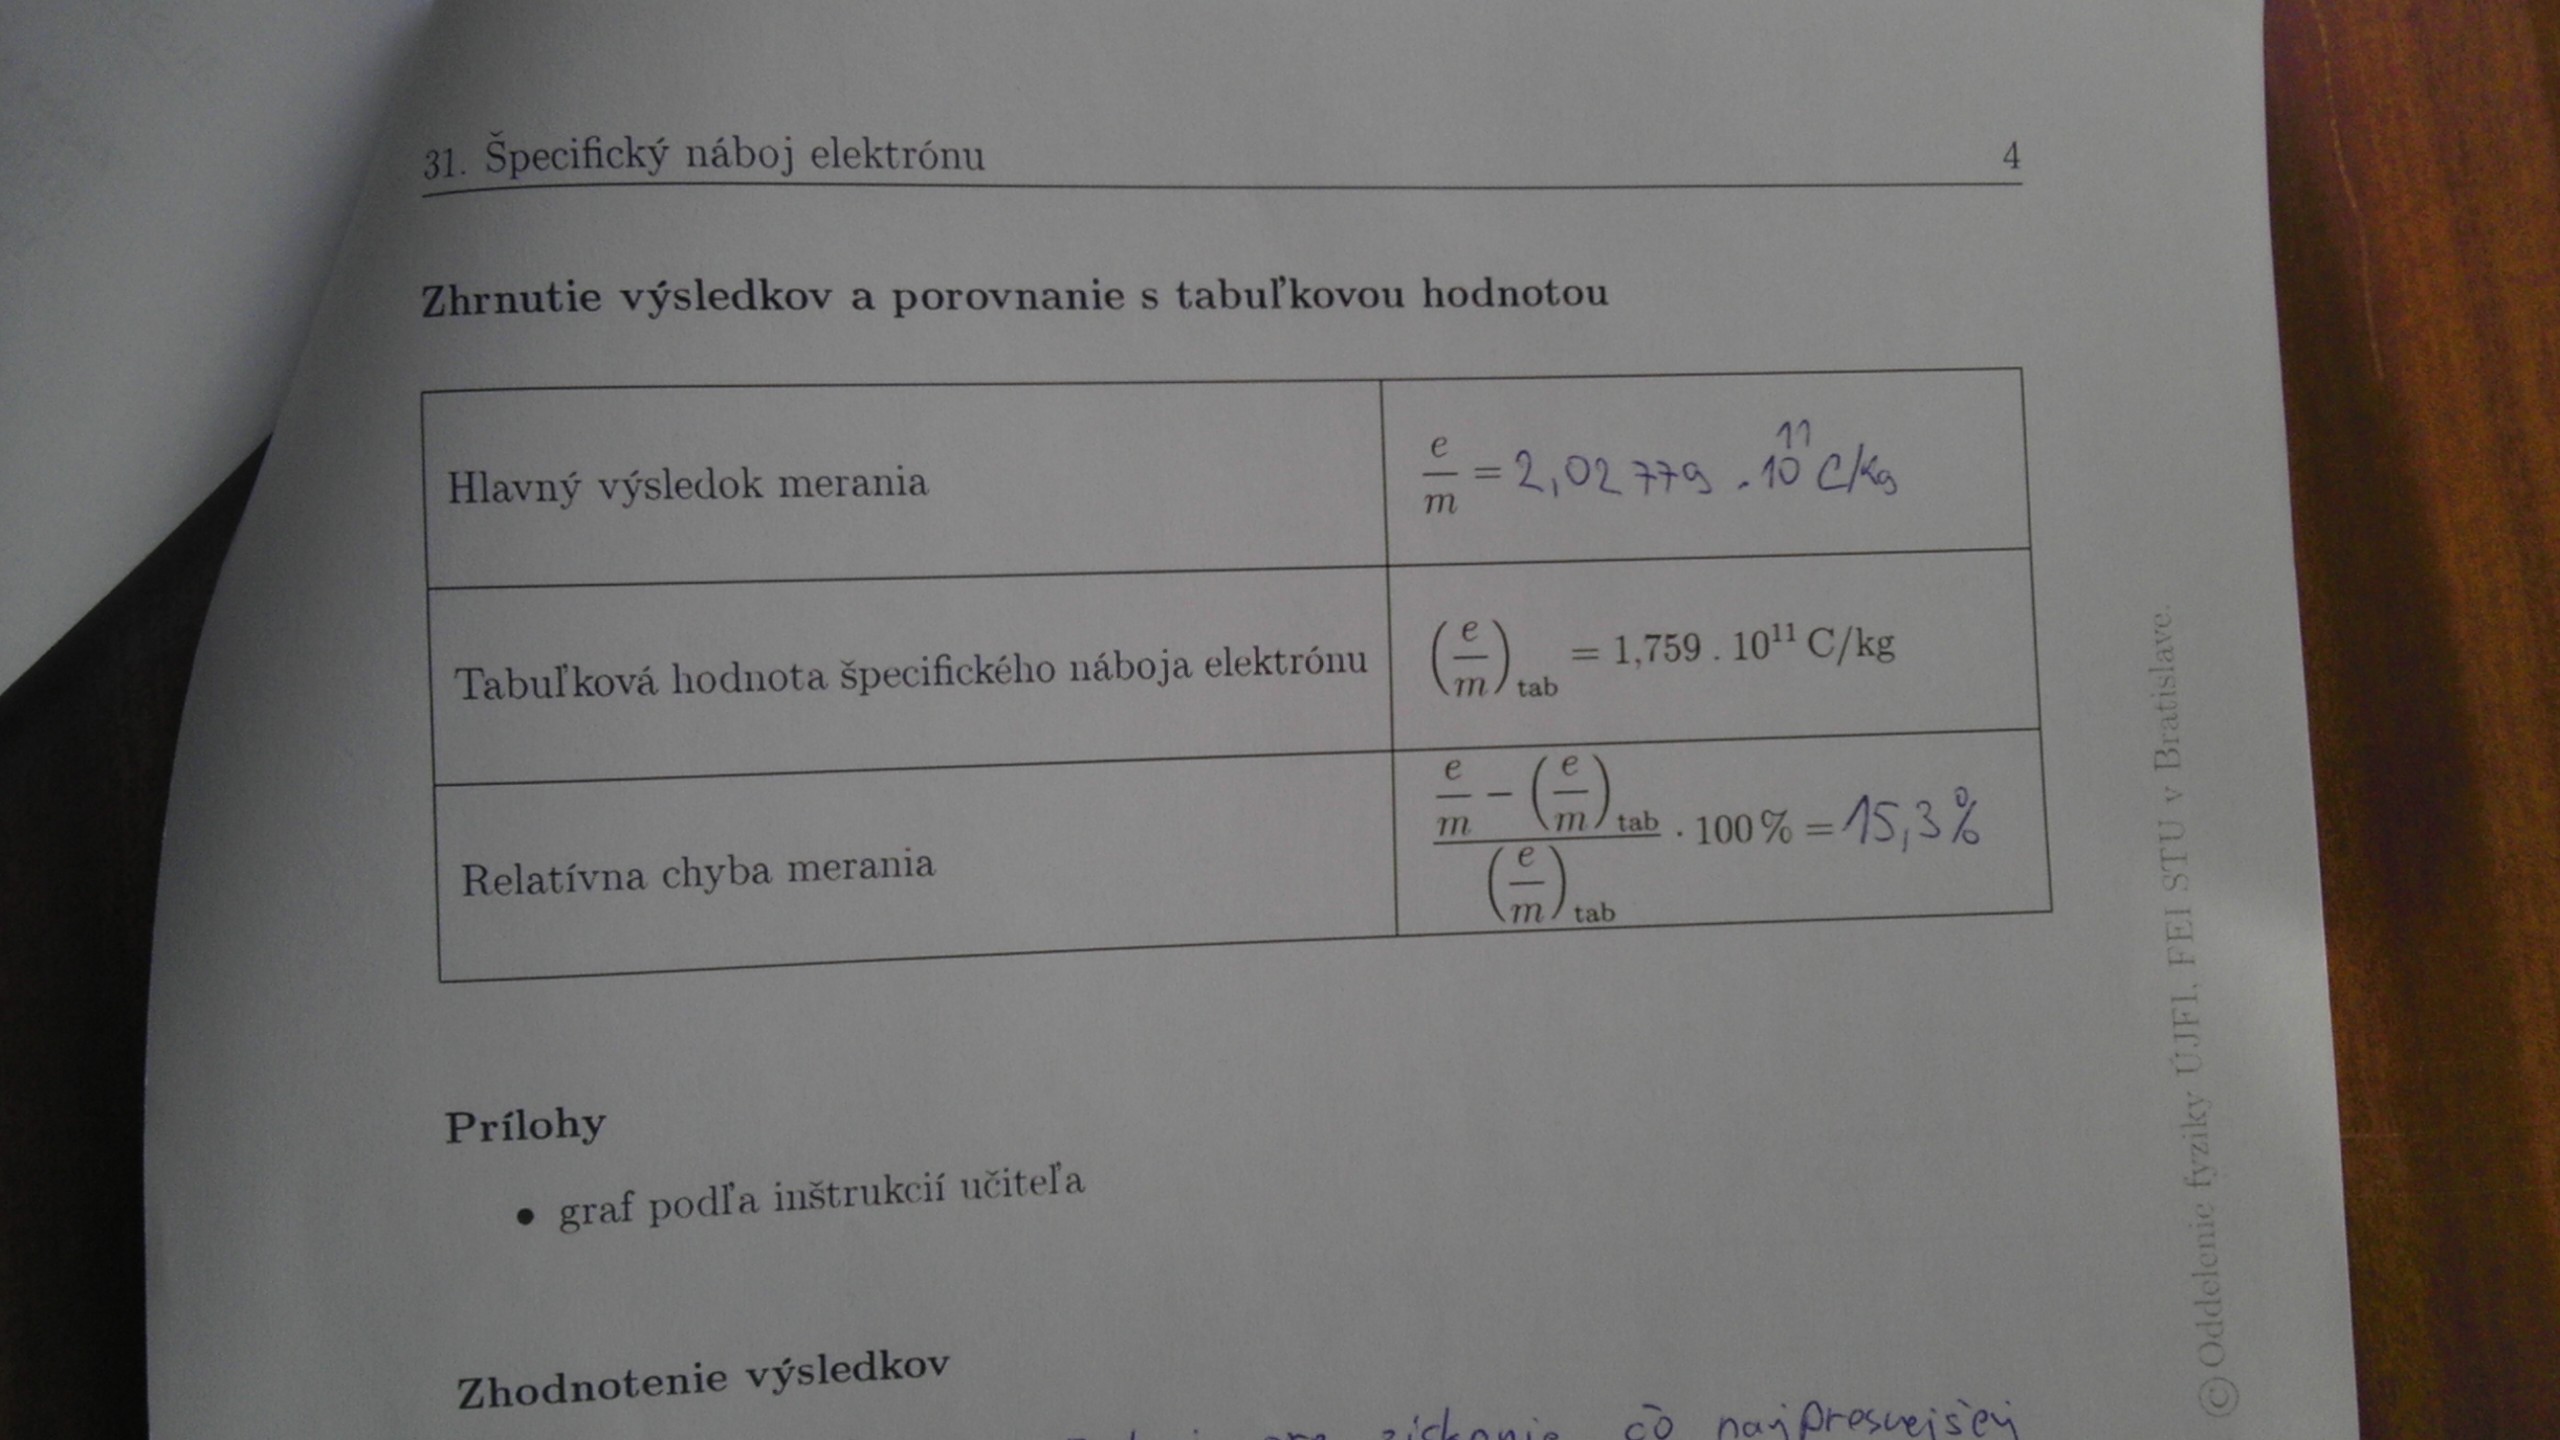 31. Špecifický náboj elektrónu 4
Zhrnutie výsledkov a porovnanie s tabuľkovou hodnotou
Hlavný výsledok merania e/m = 2,02779 . 10¹¹ C/kg
Tabuľková hodnota špecifického náboja elektrónu (e/m)tab = 1,759 . 10¹¹ C/kg
Relatívna chyba merania (e/m − (e/m)tab)/(e/m)tab · 100 % = 15,3%
Prílohy
• graf podľa inštrukcií učiteľa
Zhodnotenie výsledkov
získanie čo najpresnejšej
© Oddelenie fyziky ÚJFI, FEI STU v Bratislave.